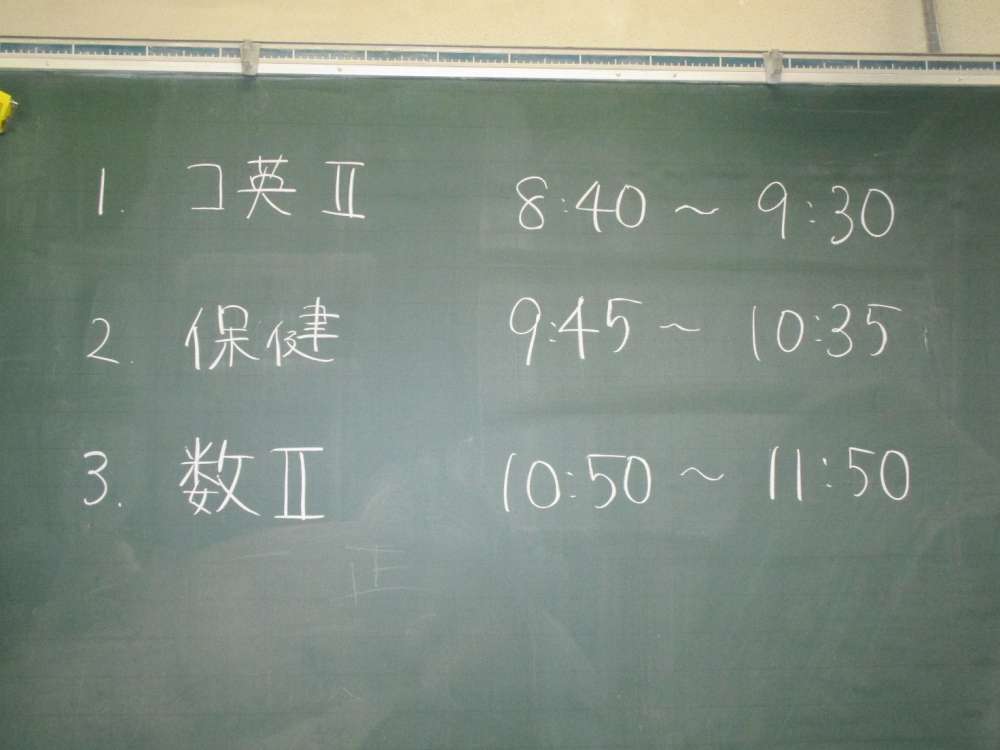 1. コ英Ⅱ 8:40 〜 9:30
2. 保健 9:45 〜 10:35
3. 数Ⅱ 10:50 〜 11:50
正